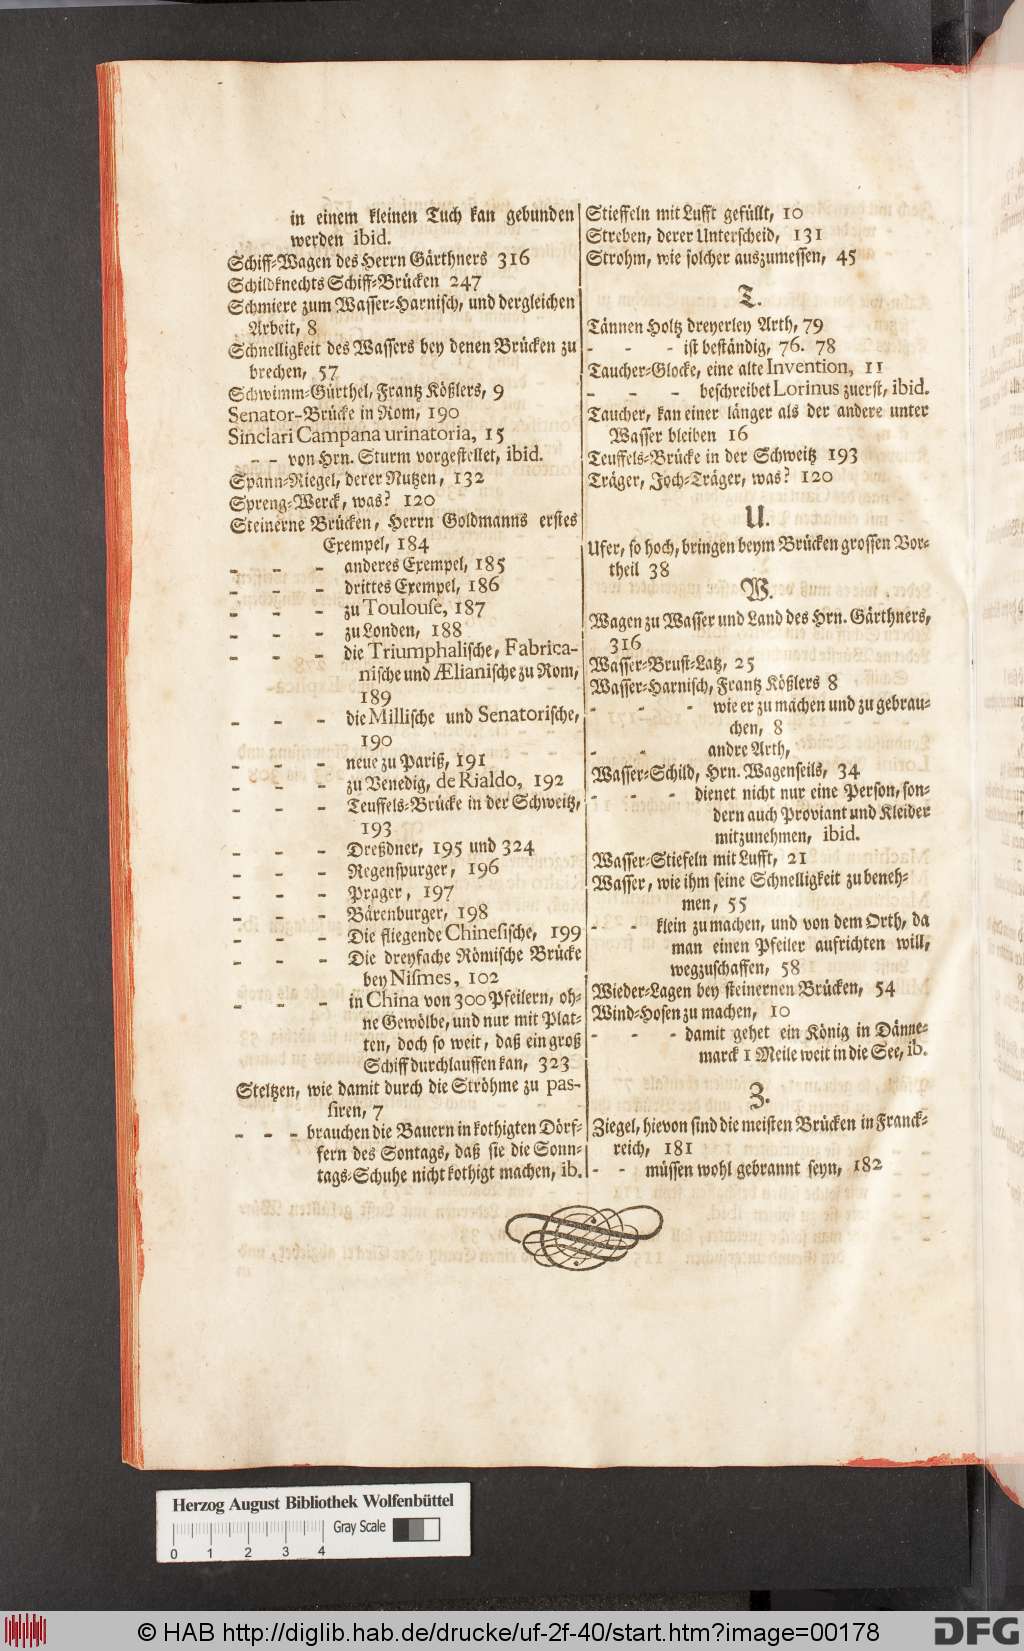 in einem kleinen Tuch kan gebunden
werden ibid.
Schiff-Wagen des Herrn Gärthners 316
Schildknechts Schiff-Brücken 247
Schmiere zum Wasser-Harnisch, und dergleichen
Arbeit, 8
Schnelligkeit des Wassers bey denen Brücken zu
brechen, 57
Schwimm-Gürthel, Frantz Kößlers, 9
Senator-Brücke in Rom, 190
Sinclari Campana urinatoria, 15
- - von Hrn. Sturm vorgestellet, ibid.
Spann-Riegel, derer Nutzen, 132
Spreng-Werck, was? 120
Steinerne Brücken, Herrn Goldmanns erstes
Exempel, 184
- - - anderes Exempel, 185
- - - drittes Exempel, 186
- - - zu Toulouse, 187
- - - zu Londen, 188
- - - die Triumphalische, Fabrica-
nische und ÆElianische zu Rom,
189
- - - die Millische und Senatorische,
190
- - - neue zu Pariß, 191
- - - zu Venedig, de Rialdo, 192
- - - Teuffels-Brücke in der Schweitz,
193
- - - Dreßdner, 195 und 324
- - - Regenspurger, 196
- - - Prager, 197
- - - Bärenburger, 198
- - - Die fliegende Chinesische, 199
- - - Die dreyfache Römische Brücke
bey Nismes, 102
- - - in China von 300 Pfeilern, oh-
ne Gewölbe, und nur mit Plat-
ten, doch so weit, daß ein groß
Schiff durchlauffen kan, 323
Steltzen, wie damit durch die Ströhme zu pas-
siren, 7
- - - brauchen die Bauern in kothigten Dörf-
fern des Sontags, daß sie die Sonn-
tags-Schuhe nicht kothigt machen, ib.
Stieffeln mit Lufft gefüllt, 10
Streben, derer Unterscheid, 131
Strohm, wie solcher auszumessen, 45
T.
Tännen Holtz dreyerley Arth, 79
- - - ist beständig, 76. 78
Taucher-Glocke, eine alte Invention, 11
- - - beschreibet Lorinus zuerst, ibid.
Taucher, kan einer länger als der andere unter
Wasser bleiben 16
Teuffels-Brücke in der Schweitz 193
Träger, Joch-Träger, was? 120
U.
Ufer, so hoch, bringen beym Brücken grossen Vor-
theil 38
W.
Wagen zu Wasser und Land des Hrn. Gärthners,
316
Wasser-Brust-Latz, 25
Wasser-Harnisch, Frantz Kößlers 8
- - - wie er zu machen und zu gebrau-
chen, 8
- - andre Arth,
Wasser-Schild, Hrn. Wagenseils, 34
- - - dienet nicht nur eine Person, son-
dern auch Proviant und Kleider
mitzunehmen, ibid.
Wasser-Stiefeln mit Lufft, 21
Wasser, wie ihm seine Schnelligkeit zu beneh-
men, 55
- - klein zu machen, und von dem Orth, da
man einen Pfeiler aufrichten will,
wegzuschaffen, 58
Wieder-Lagen bey steinernen Brücken, 54
Wind-Hosen zu machen, 10
- - - damit gehet ein König in Dänne-
marck 1 Meile weit in die See, ib.
Z.
Ziegel, hievon sind die meisten Brücken in Franck-
reich, 181
- - müssen wohl gebrannt seyn, 182
Herzog August Bibliothek Wolfenbüttel
Gray Scale
0 1 2 3 4
© HAB http://diglib.hab.de/drucke/uf-2f-40/start.htm?image=00178
DFG